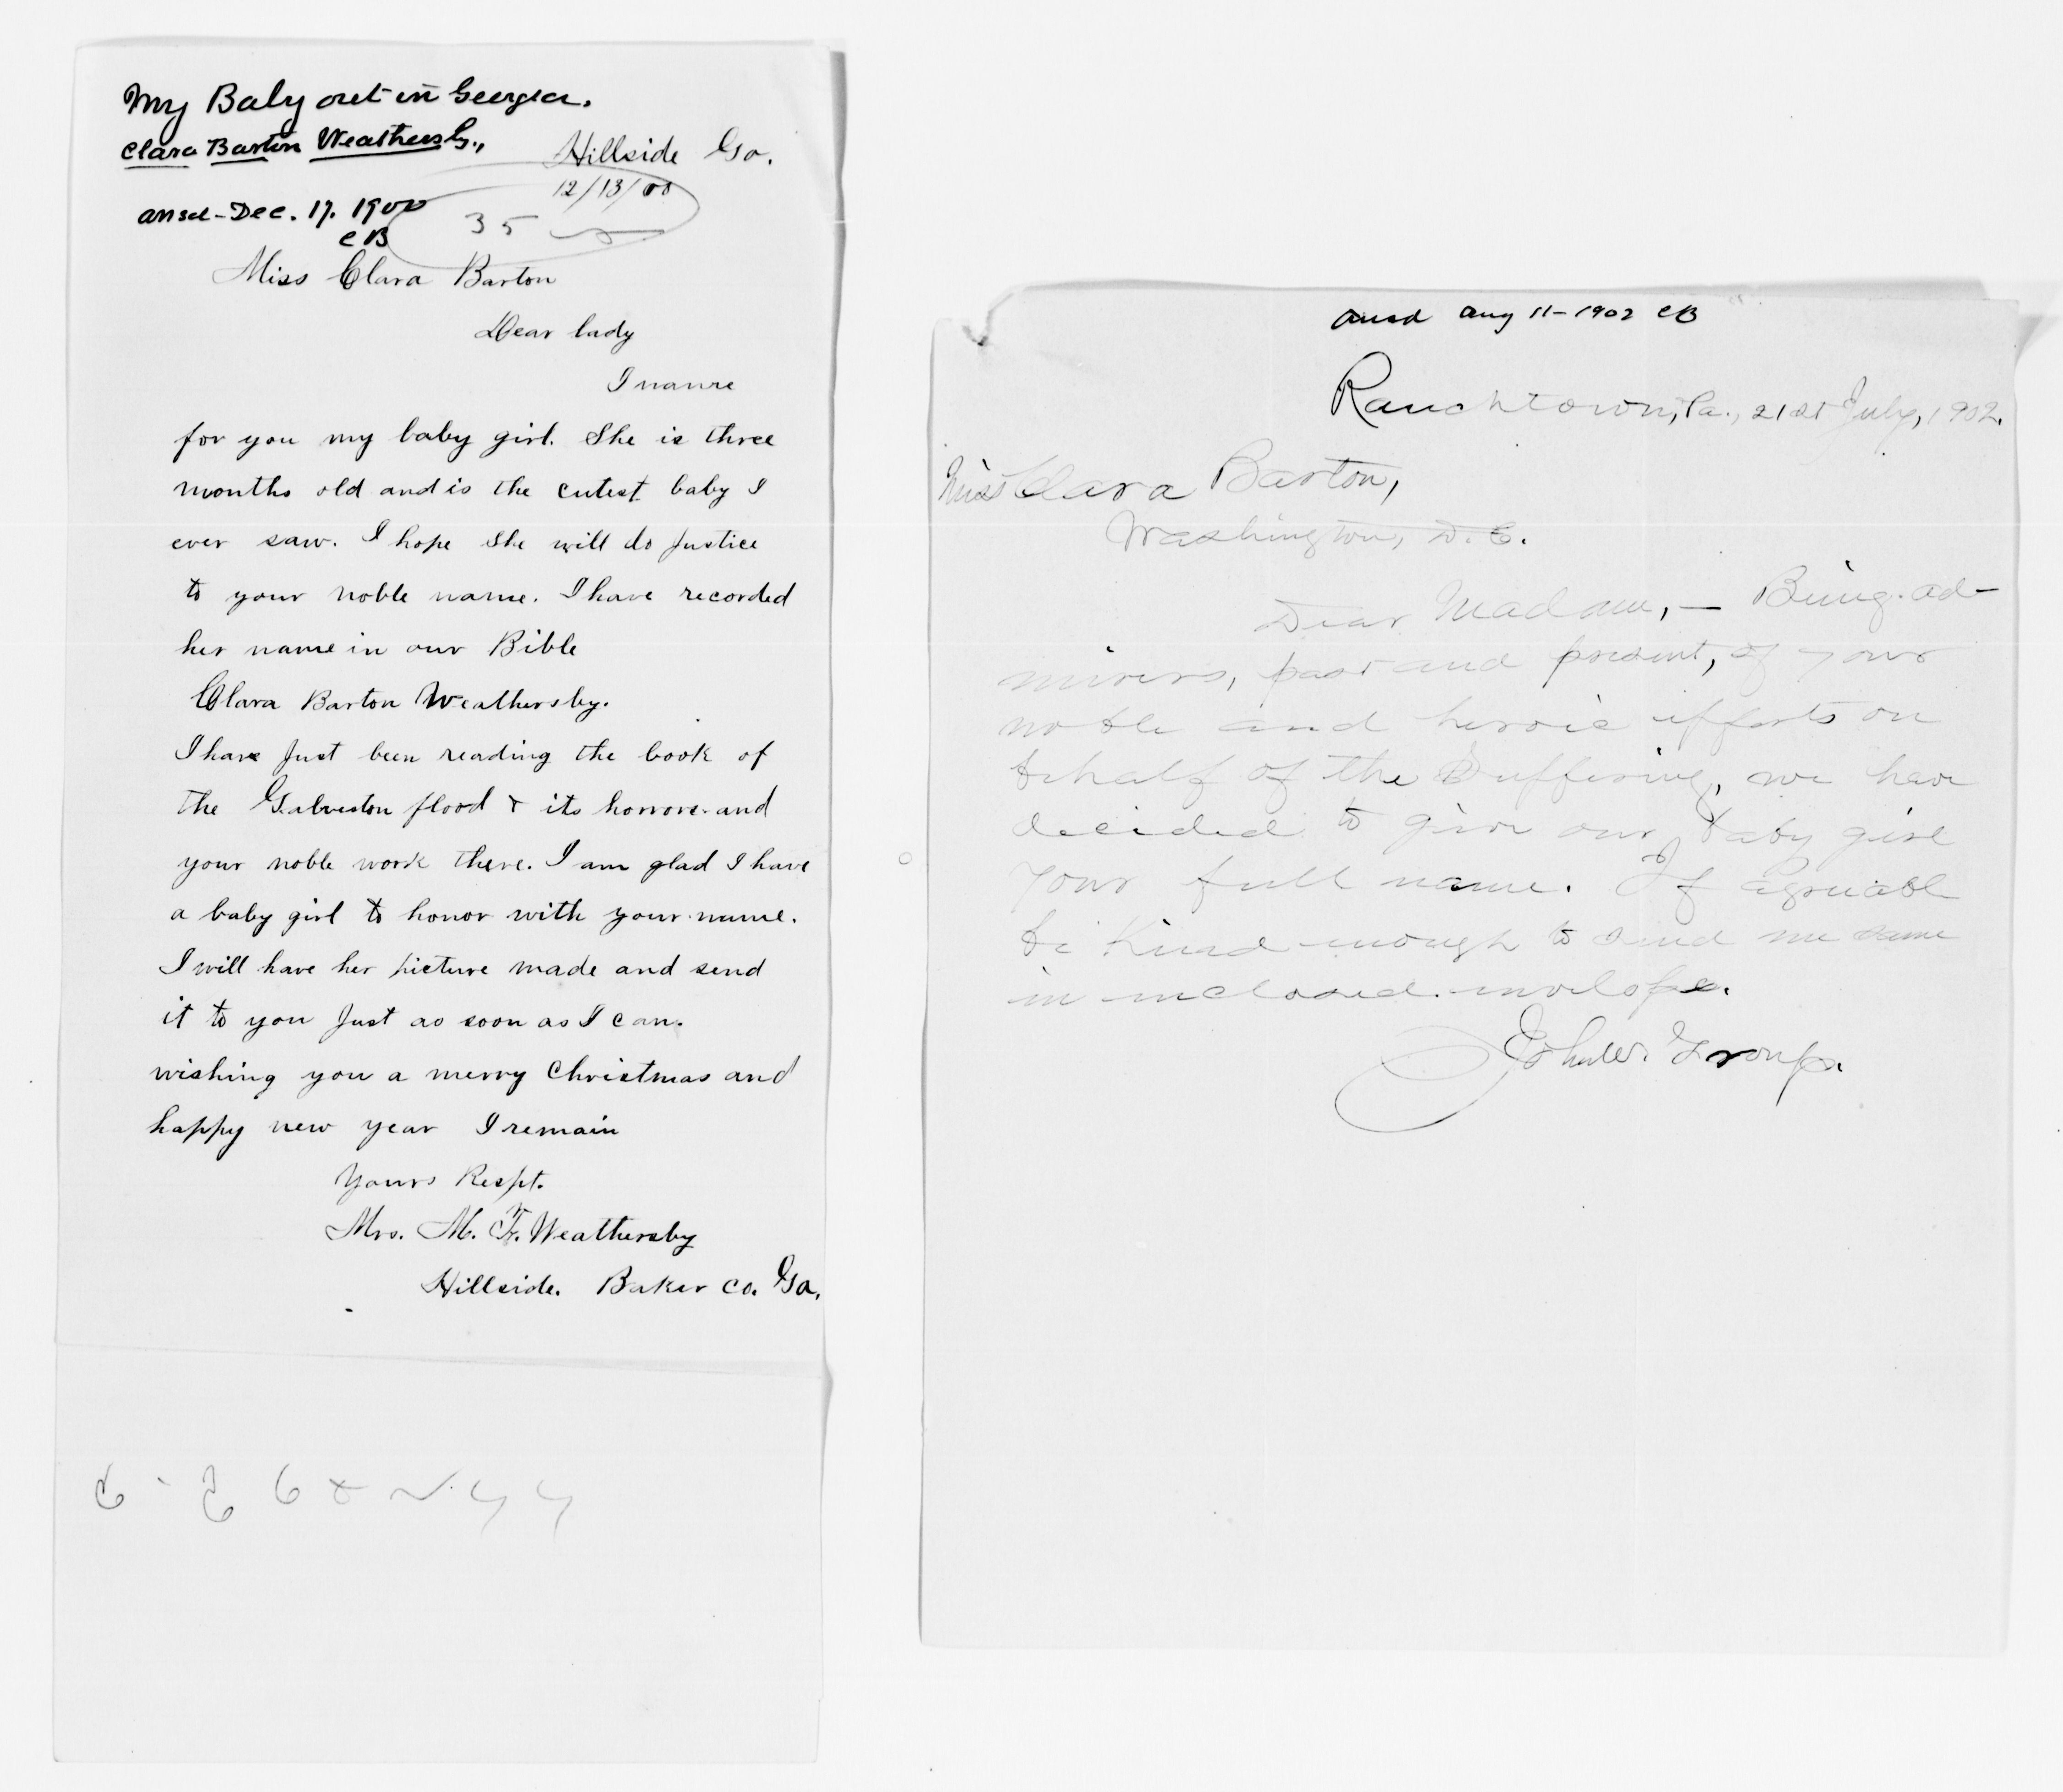 My Baby out in Georgia.
Clara Barton Weathersby,
Hillside Ga.
12/13/00
ansd - Dec. 17. 1900
CB
35
Miss Clara Barton
Dear lady
I name
for you my baby girl. She is three
months old and is the cutest baby I
ever saw. I hope she will do Justice
to your noble name. I have recorded
her name in our Bible
Clara Barton Weathersby.
I have Just been reading the book of
the Galveston flood & its horrors and
your noble work there. I am glad I have
a baby girl to honor with your name.
I will have her picture made and send
it to you Just as soon as I can.
wishing you a merry Christmas and
happy new year I remain
Yours Respt.
Mrs. M. F. Weathersby
Hillside. Baker Co. Ga.
ansd Aug 11 - 1902 CB
Rauchtown, Pa., 21st July, 1902.
Miss Clara Barton,
Washington, D.C.
Dear Madam, — Being ad-
mirers, past and present, of your
noble and heroic efforts on
behalf of the Suffering, we have
decided to give our baby girl
your full name. If agreeable
be kind enough to send me same
in inclosed envelope.
John W. Troup.